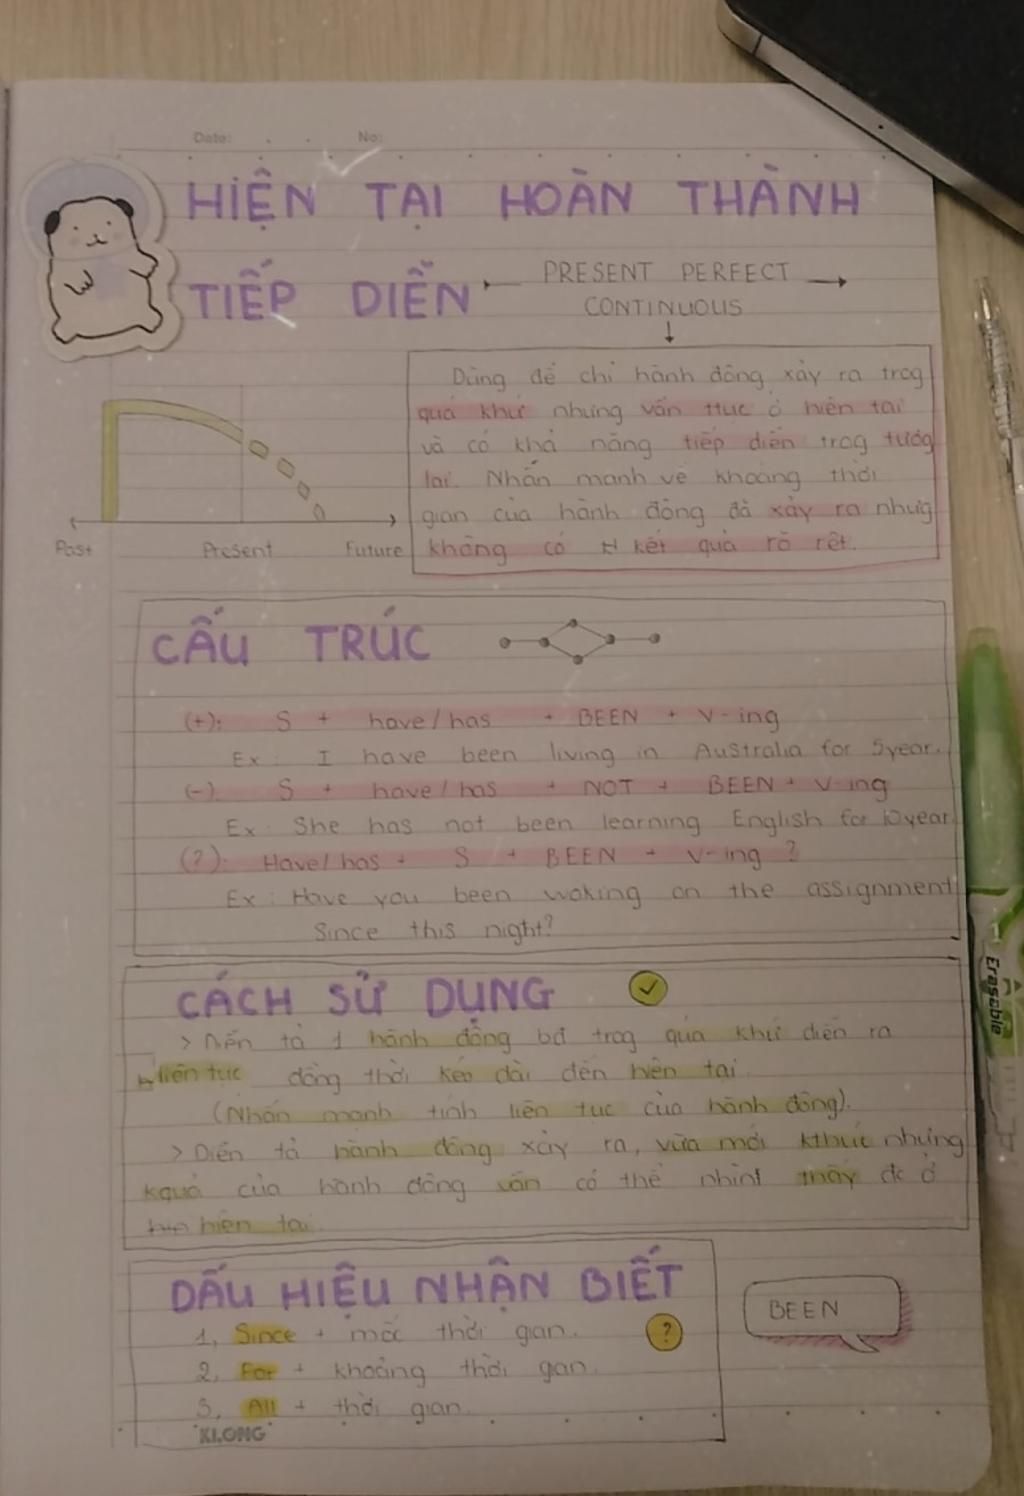 Date: No:
HIỆN TẠI HOÀN THÀNH
TIẾP DIỄN
PRESENT PERFECT
CONTINUOUS
Dùng để chỉ hành động xảy ra trog
quá khứ nhưng vẫn ttục ở hiện tại
và có khả năng tiếp diễn trog tươg
lai. Nhấn mạnh về khoảng thời
gian của hành động đã xảy ra nhưg
không có kết quả rõ rệt.
Past Present Future
CẤU TRÚC
(+): S + have/has + BEEN + V-ing
Ex: I have been living in Australia for 5year.
(-): S + have/has + NOT + BEEN + V-ing
Ex: She has not been learning English for 10year
(?): Have/has + S + BEEN + V-ing ?
Ex: Have you been woking on the assignment
Since this night?
CÁCH SỬ DỤNG
> Diễn tả 1 hành động bđ trog quá khứ diễn ra
liên tục đồng thời kéo dài đến hiện tại.
(Nhấn mạnh tính liên tục của hành động).
> Diễn tả hành động xảy ra, vừa mới kthúc nhưng
kquả của hành động vẫn có thể nhìn thấy đc ở
hiện tại.
DẤU HIỆU NHẬN BIẾT
1, Since + mốc thời gian.
2, For + khoảng thời gan.
3, All + thời gian.
BEEN
KLONG
Erasable